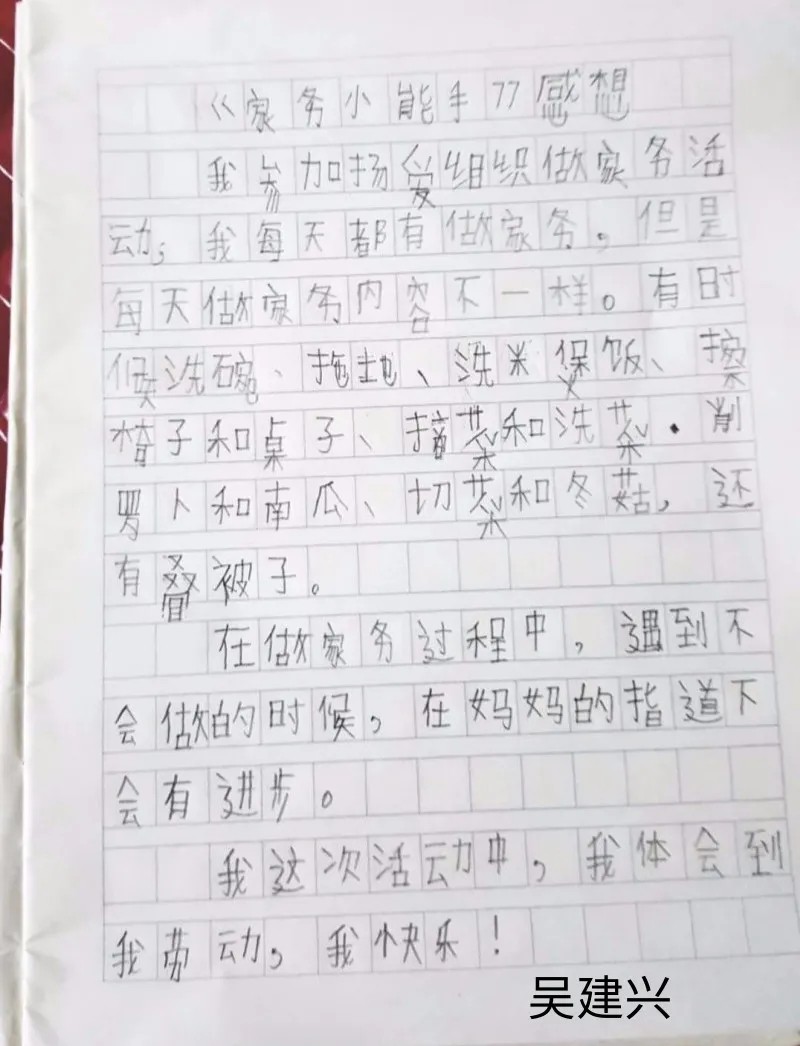 《家务小能手》感想
我参加扬爱组织做家务活
动，我每天都有做家务。但是
每天做家务内容不一样。有时
候洗碗、拖地、洗米保饭、擦
椅子和桌子、摘菜和洗菜．削
罗卜和南瓜、切菜和冬菇，还
有叠被子。
在做家务过程中，遇到不
会做的时候，在妈妈的指道下
会有进步。
我这次活动中，我体会到
我劳动，我快乐！
吴建兴